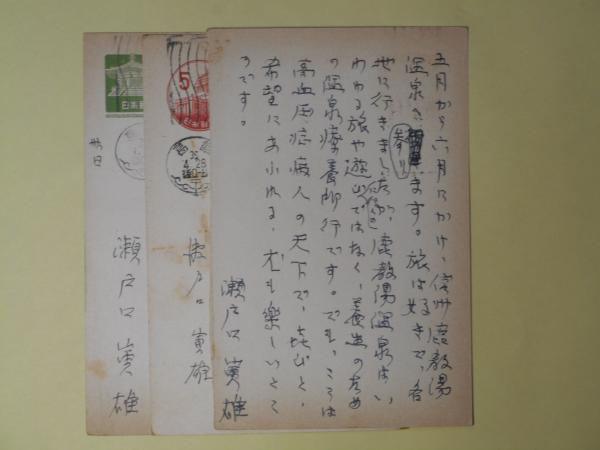 五月から六月にかけ、信州鹿教湯
温泉へ参ります。旅は好きで、各
地に行きましたが、鹿教湯温泉はい
わゆる旅や遊びではなく、養生のため
の温泉療養御行です。でも、ここは
高血圧症病人の天下で、喜びと、
希望にあふれる、尤も楽しいとこ
ろです。
瀬戸口寅雄
5
日本郵便
瀬戸口寅雄
日本郵便
瀬戸口寅雄